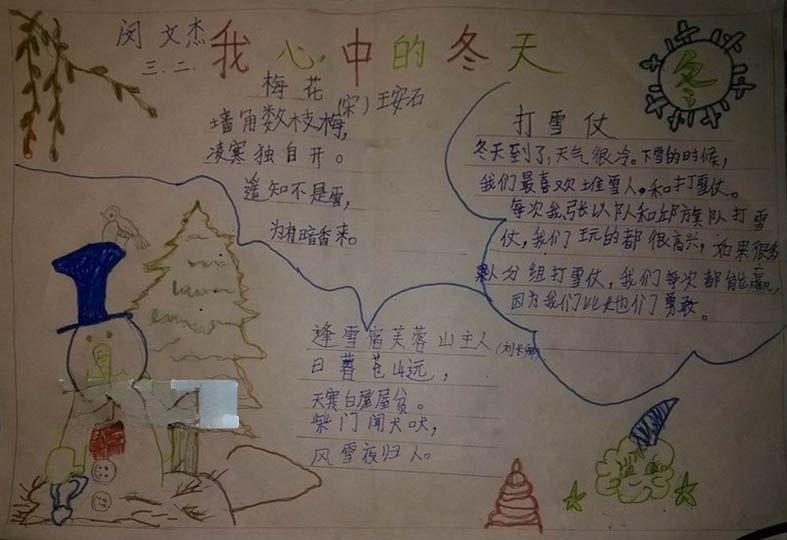 闵文杰
三.二.
我心中的冬天
冬
梅花
(宋)王安石
墙角数枝梅,
凌寒独自开。
遥知不是雪,
为有暗香来。
打雪仗
冬天到了,天气很冷。下雪的时候,
我们最喜欢堆雪人。和打雪仗。
每次我张以队和邱旗队打雪
仗,我们玩的都很高兴,如果很多
队分组打雪仗,我们每次都能赢,
因为我们比也们勇敢。
逢雪宿芙蓉山主人(刘长卿)
日暮苍山远,
天寒白屋屋贫。
柴门闻犬吠,
风雪夜归人。